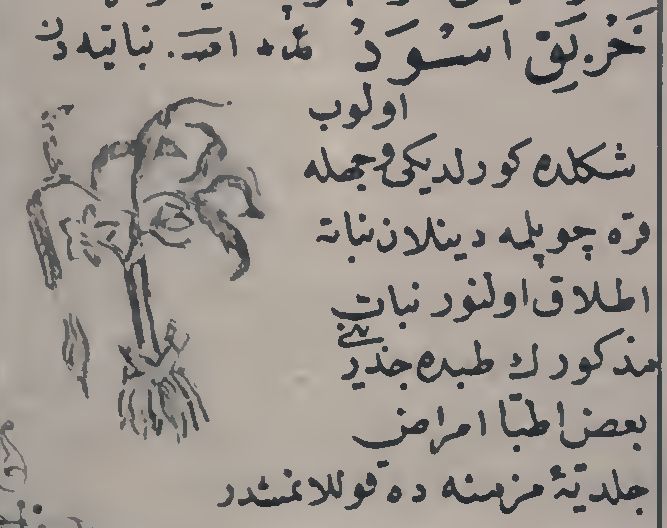 خربق اسود مادۀ اسـ. نباتیه دن
اولوب
شکلده کورلدیکی وجهله
قره چوپلمه دینلان نباته
اطلاق اولنور نبات
مذکورك طبده جذرینی
بعض اطبا امراض
جلدیۀ مزمنه ده قوللانمشدر